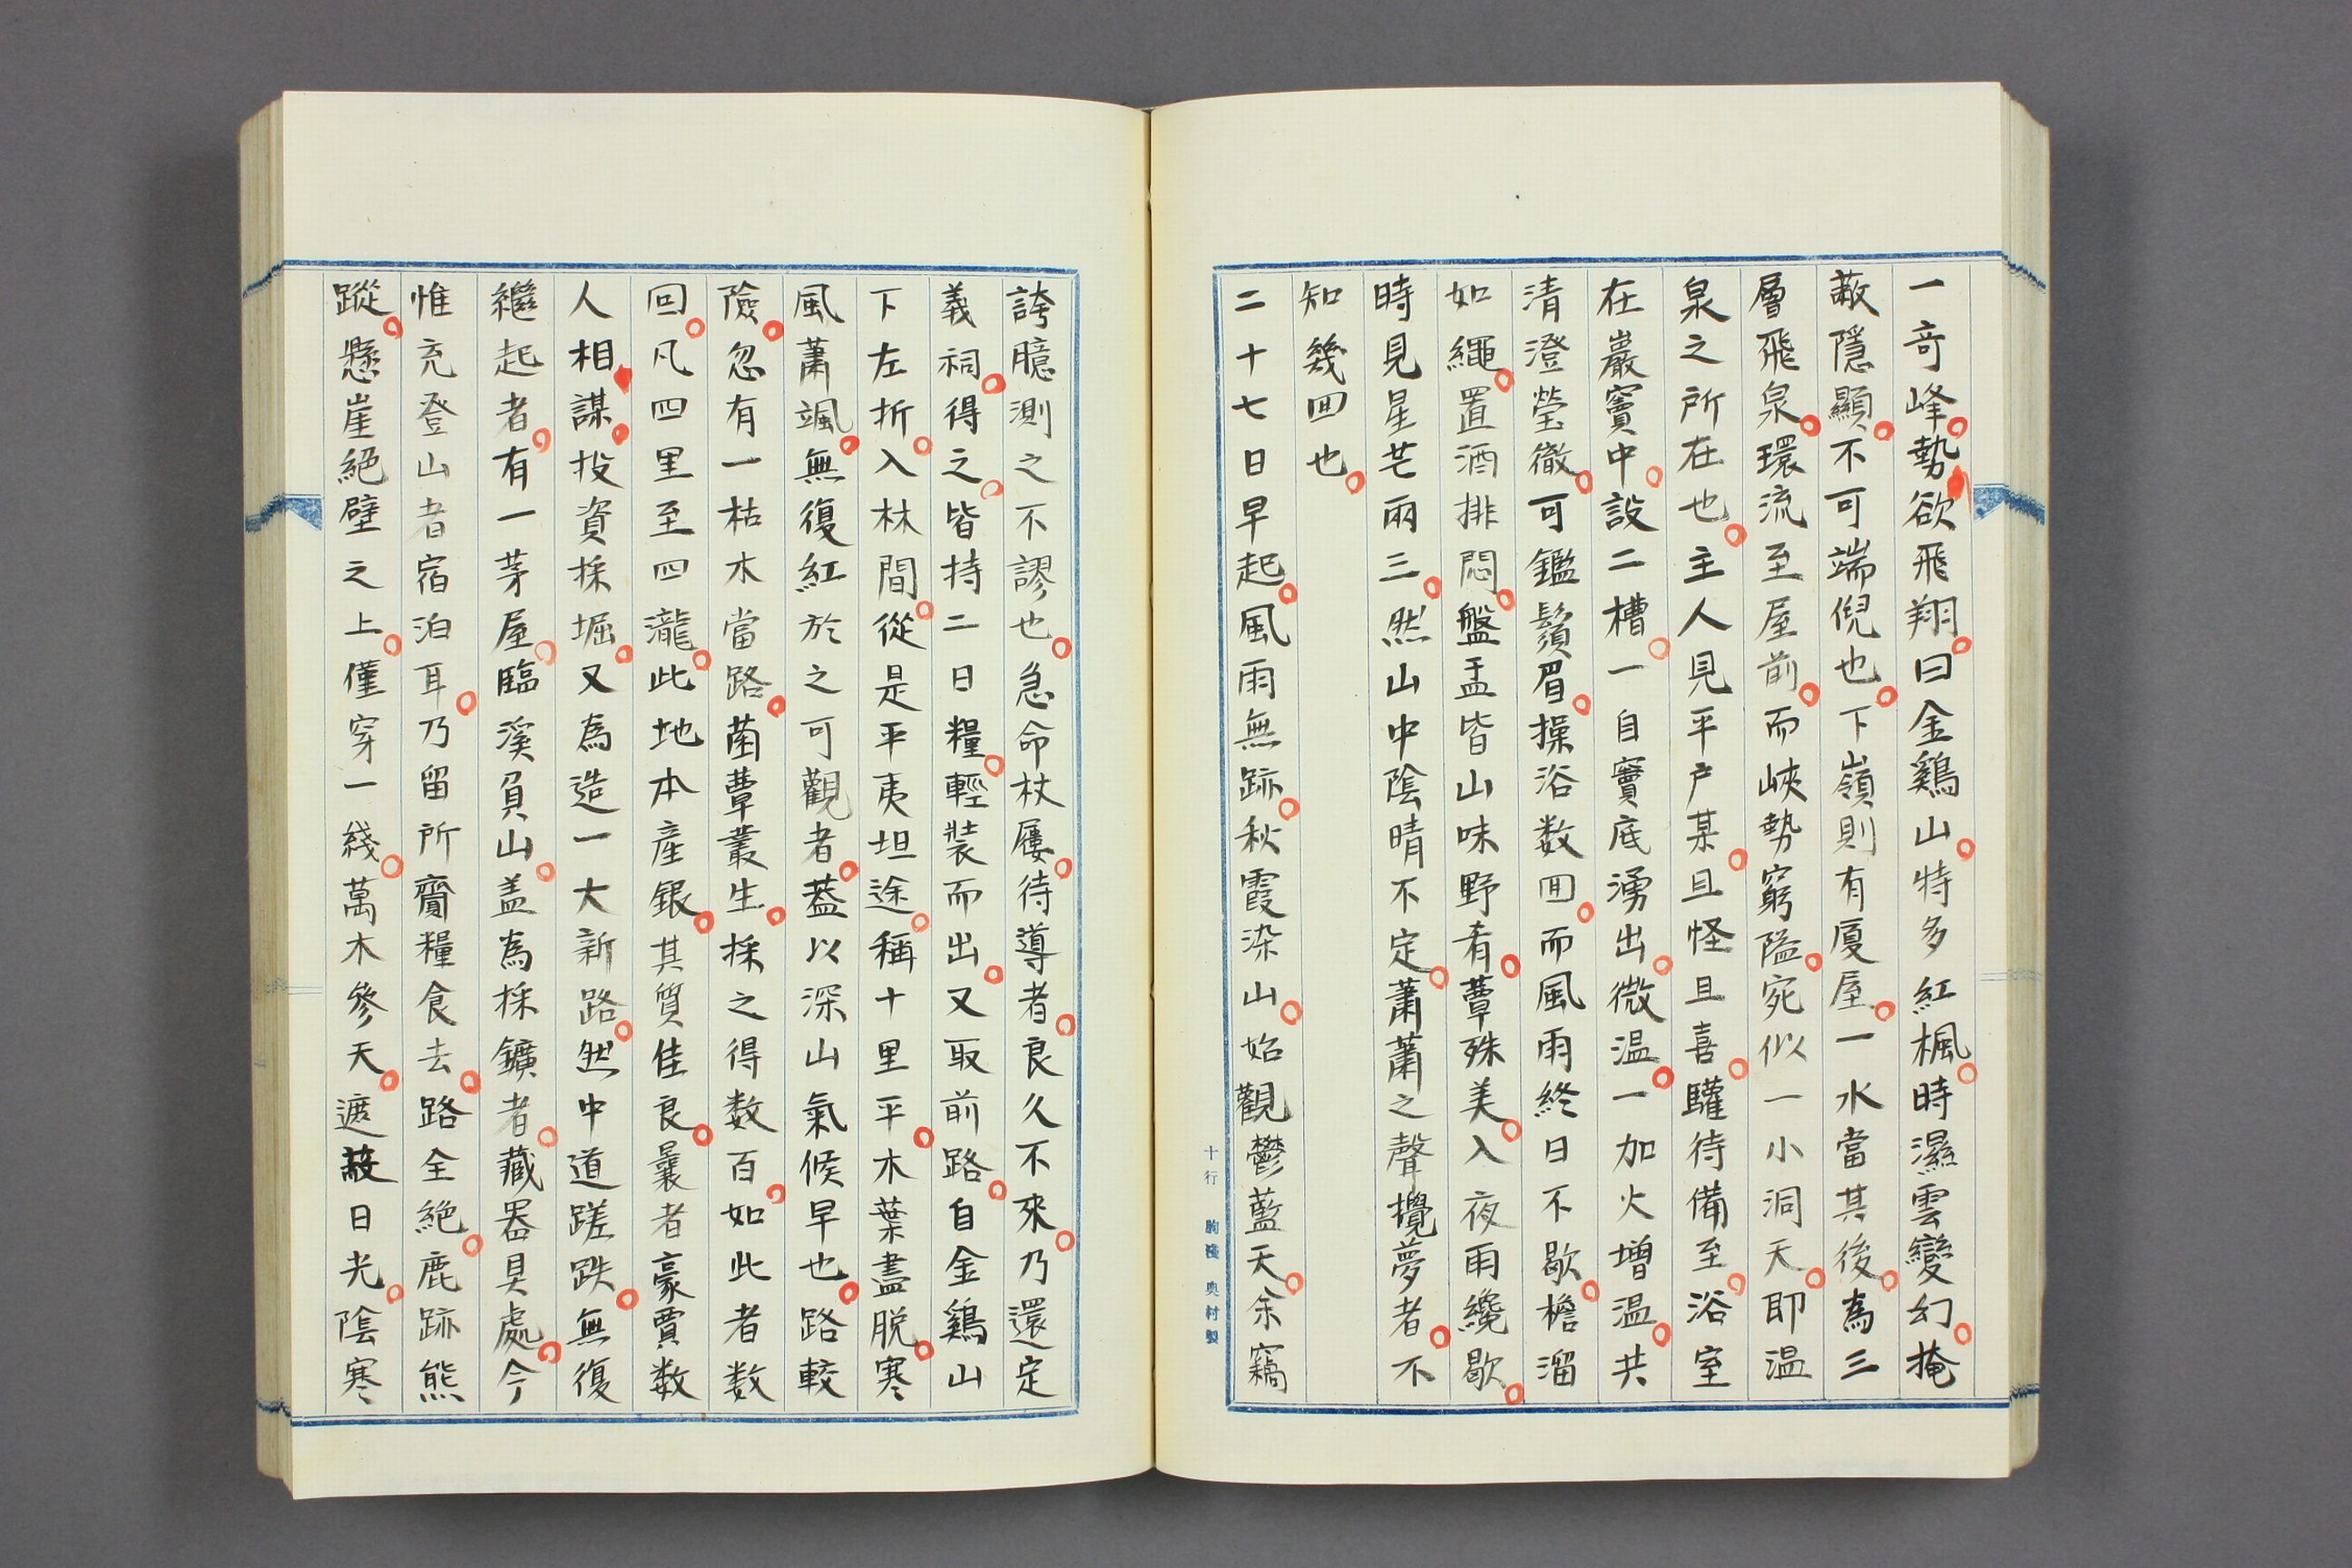 一奇峰。勢欲飛翔。曰金鷄山。特多紅楓。時濕雲變幻。掩
蔽隱顯。不可端倪也。下嶺則有厦屋。一水當其後。為三
層飛泉。環流至屋前。而峽勢窮隘。宛似一小洞天。即温
泉之所在也。主人見平戸某。且怪且喜。驩待備至。浴室
在巖竇中。設二槽。一自竇底湧出。微温。一加火增温。共
清澄瑩徹。可鑑鬚眉。操浴数囬。而風雨終日不歇。檐溜
如繩。置酒排悶。盤盂皆山味野肴。蕈殊美。入夜雨纔歇。
時見星芒兩三。然山中陰晴不定。蕭蕭之聲攪夢者。不
知幾囬也。
二十七日早起。風雨無跡。秋霞染山。始觀鬱藍天。余竊
誇臆測之不謬也。急命杖屨。待導者。良久不來。乃還定
義祠。得之。皆持二日糧。輕装而出。又取前路。自金鷄山
下左折。入林間。從是平夷坦途。稱十里平。木葉盡脱。寒
風蕭颯。無復紅於之可觀者。蓋以深山氣候早也。路較
險。忽有一枯木當路。菌蕈叢生。採之得数百。如此者数
回。凡四里至四瀧。此地本産銀。其質佳良。曩者豪賈数
人相謀。投資採堀。又為造一大新路。然中道蹉跌。無復
繼起者。有一茅屋。臨溪負山。盖為採鑛者。藏器具處。今
惟充登山者宿泊耳。乃留所齎糧食去。路全絶。鹿跡熊
蹤。懸崖絕壁之上。僅穿一綫。萬木參天。遮蔽日光。陰寒
十行 奥村製